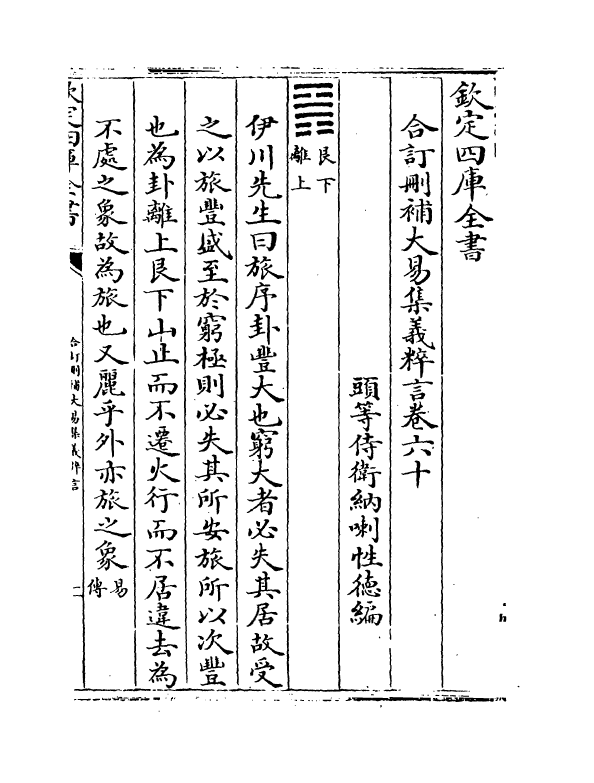 欽定四庫全書
合訂刪補大易集義粹言卷六十
頭等侍衛納喇性德編
艮下
離上
伊川先生曰旅序卦豐大也窮大者必失其居故受
之以旅豐盛至於窮極則必失其所安旅所以次豐
也為卦離上艮下山止而不遷火行而不居違去為
不處之象故為旅也又麗乎外亦旅之象易
傳
欽定四庫全書
合訂刪補大易集義粹言